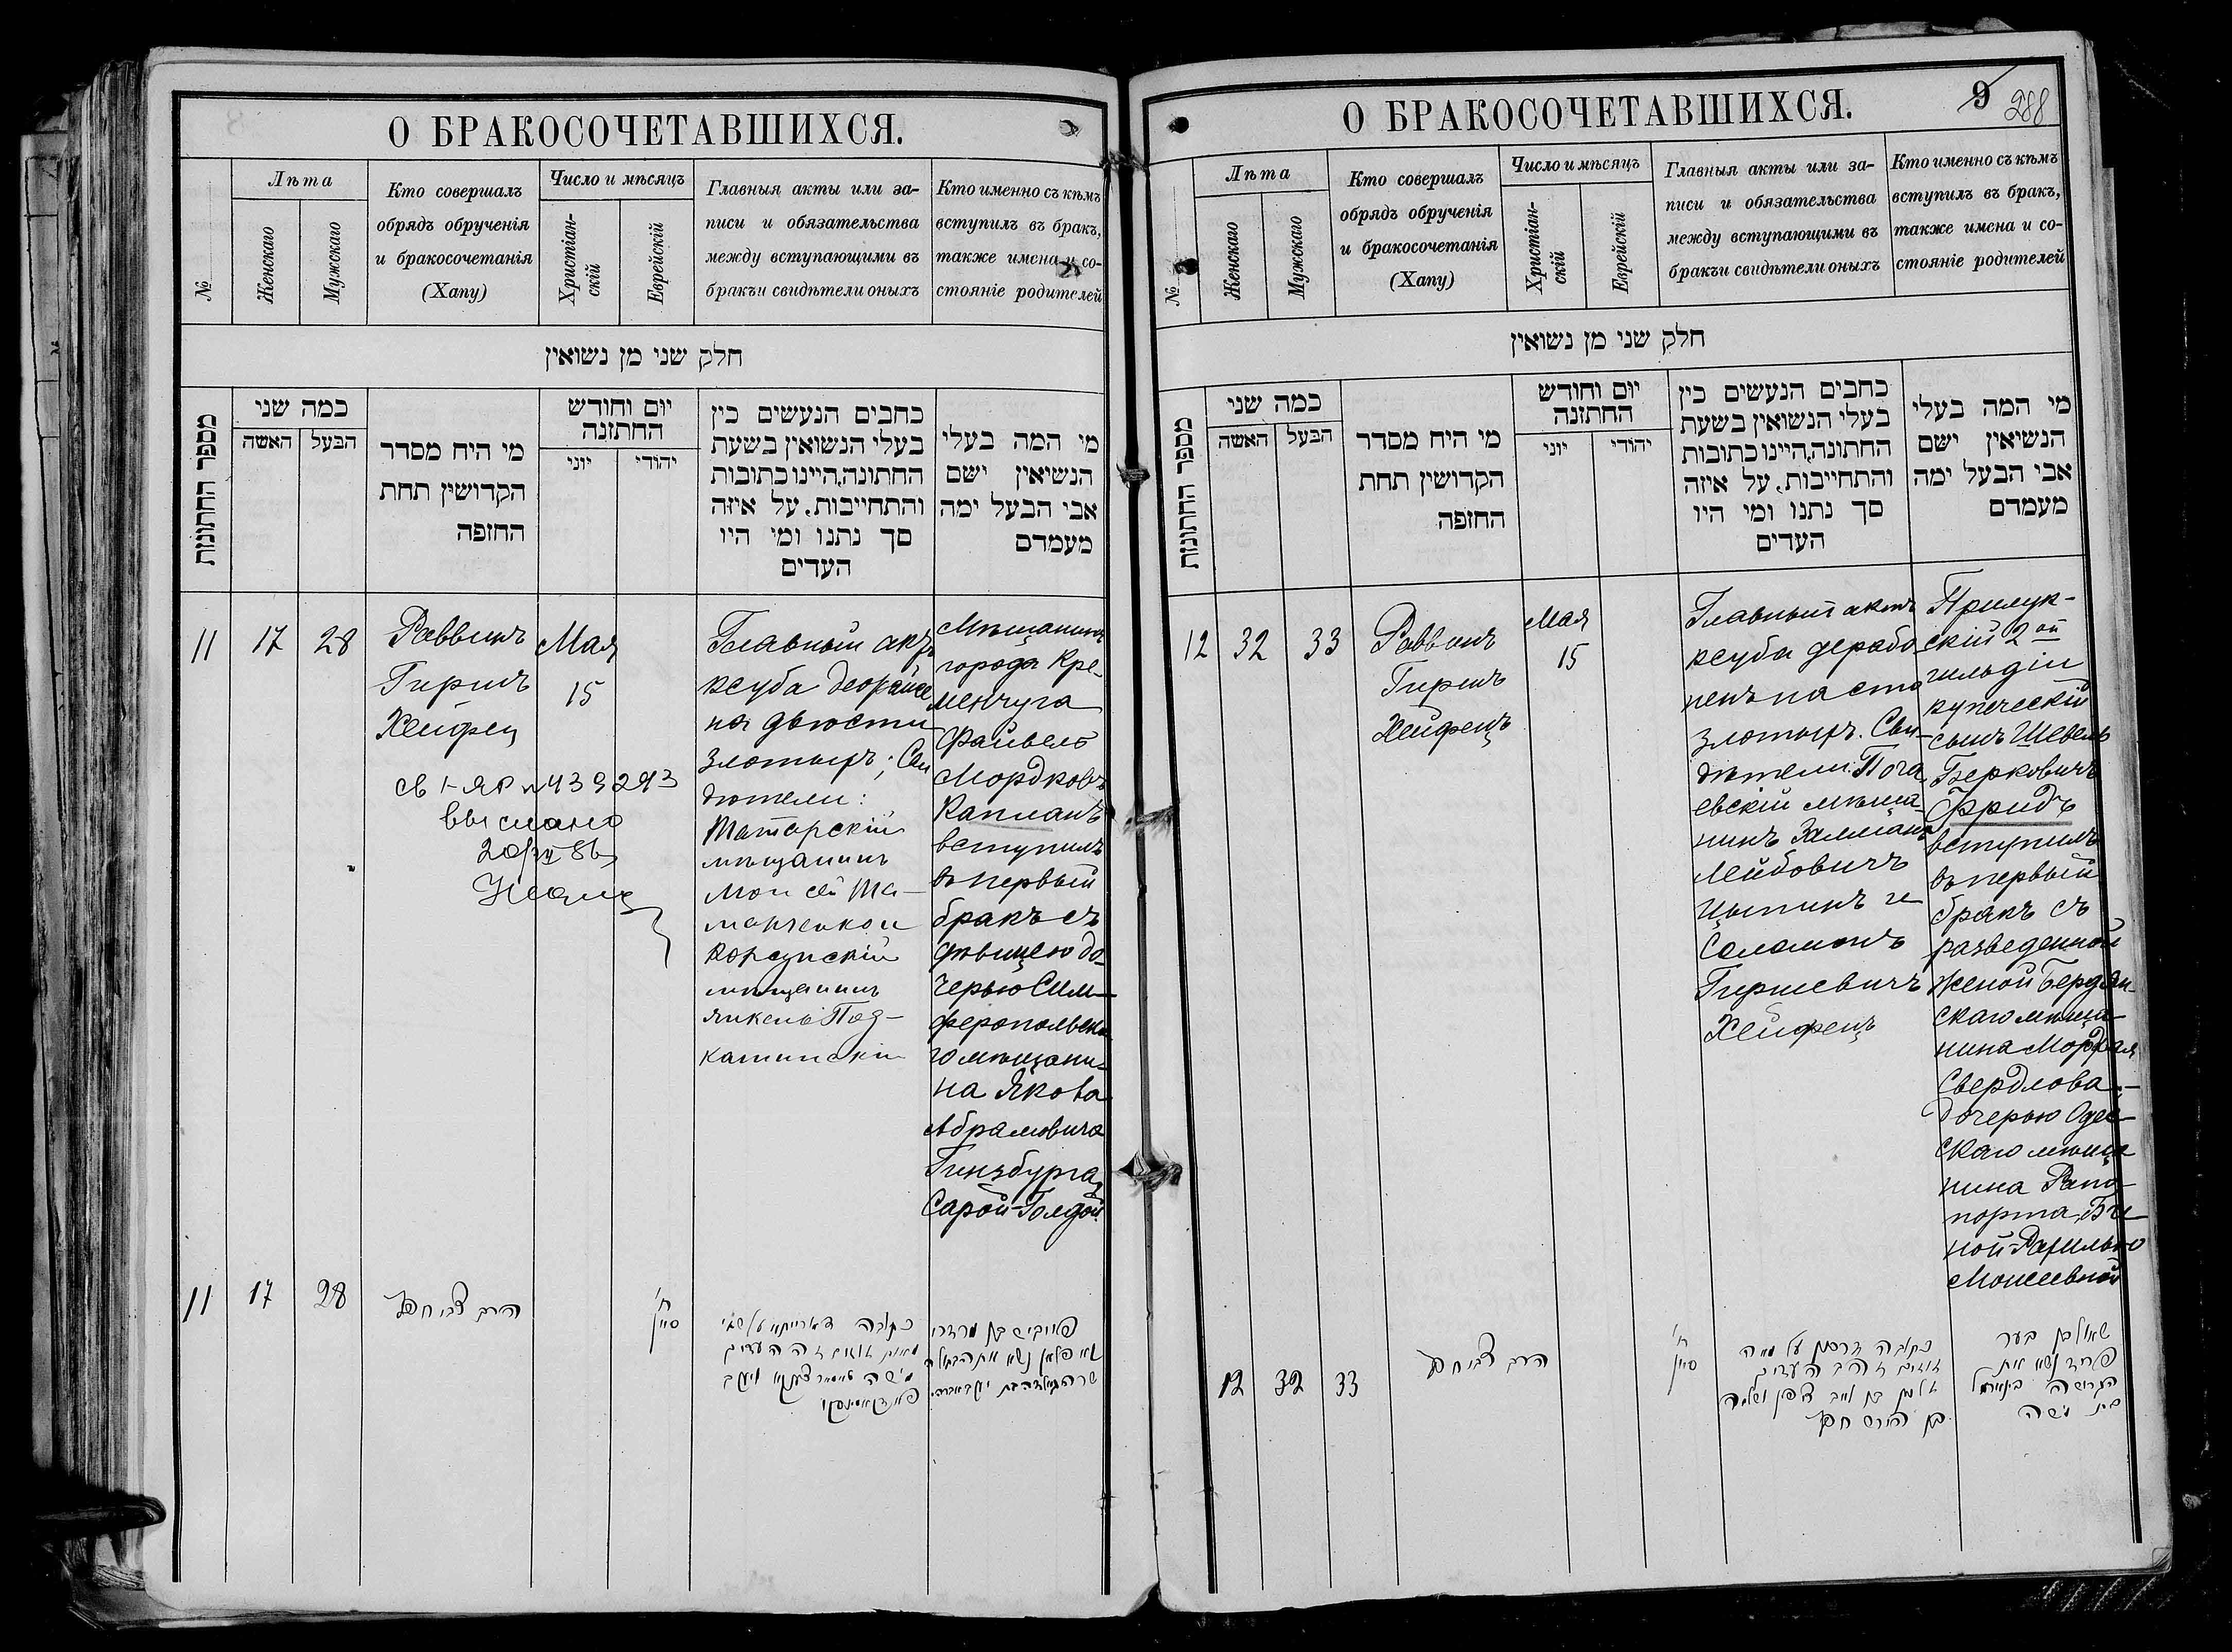 О БРАКОСОЧЕТАВШИХСЯ.
№
Лѣта
Женскаго
Мужскаго
Кто совершалъ
обрядъ обрученія
и бракосочетанія
(Хапу)
Число и мѣсяцъ
Христіан-
скій
Еврейскій
Главныя акты или за-
писи и обязательства
между вступающими въ
бракъи свидѣтели оныхъ
Кто именно съ кѣмъ
вступилъ въ бракъ,
также имена и со-
стояніе родителей
חלק שני מן נשואין
מספר החתונות
כמה שני
האשה
הבעל
מי היח מסדר
הקדושין תחת
החזפה
יום וחודש
החתזנה
יוני
יהודי
כחבים הנעשים כין
בעלי הנשואין בשעת
החתונה,היינו כתובות
והתחייבות, על איזה
סך נתנו ומי היו
העדים
מי המה בעלי
הנשיאין ישם
אבי הבעל ימה
מעמדם
11
17
28
Раввинъ
Гиршъ
Хейфец
Мая
15
выслано
Главный актъ
ксуба деорайсе
на двѣсти
злотыхъ; Сви
дѣтели:
мѣщанинъ
Моисей Та-
Корсунскій
мѣщанинъ
Янкель Под-
каминскій
Мѣщанинъ
города Кре-
менчуга
Файвель
Мордковъ
Капланъ
вступилъ
въ первый
бракъ съ
дѣвицею до-
черью Сим-
феропольска
го мѣщани-
на Якова
Абрамовича
Гинзбурга,
Сарой-Голдой
11
17
28
הרב צבי חפץ
ח'
סיון
כתובה דאורייתא על שתי
פייביש בן מרדכי
קאפלאן נשא את הבתולה
О БРАКОСОЧЕТАВШИХСЯ.
9
288
№
Лѣта
Женскаго
Мужскаго
Кто совершалъ
обрядъ обрученія
и бракосочетанія
(Хапу)
Число и мѣсяцъ
Христіан-
скій
Еврейскій
Главныя акты или за-
писи и обязательства
между вступающими въ
бракъи свидѣтели оныхъ
Кто именно съ кѣмъ
вступилъ въ бракъ,
также имена и со-
стояніе родителей
חלק שני מן נשואין
מספר החתונות
כמה שני
האשה
הבעל
מי היח מסדר
הקדושין תחת
החזפה
יום וחודש
החתזנה
יוני
יהודי
כחבים הנעשים כין
בעלי הנשואין בשעת
החתונה,היינו כתובות
והתחייבות, על איזה
סך נתנו ומי היו
העדים
מי המה בעלי
הנשיאין ישם
אבי הבעל ימה
מעמדם
12
32
33
Раввинъ
Гиршъ
Хейфецъ
Мая
15
Главный актъ
ксуба дерабо
ненъ на сто
злотыхъ. Сви-
дѣтели: Пога
евскій мѣща-
нинъ Залманъ
Лейбовичъ
Цыпинъ и
Соломонъ
Гиршевичъ
Хейфецъ
Прилук-
скій 2ой
гильдіи
купеческій
сынъ Шевель
Берковичъ
Фридъ
вступилъ
въ первый
бракъ съ
разведенной
женой Бердян-
скаго мѣща-
нина Мордхая
Свердлова,-
дочерью Одес-
скаго мѣща
нина Рапо-
порта, Бы-
ной-Рахилью
Моисеевной
12
32
33
הרב צבי חפץ
ח'
סיון
כתובה דרבנן על מאה
זלמן בן לייב ציפין ושלמה
בן הירש חפץ
שאול בן בער
פריד נשא את
הגרושה
בת משה